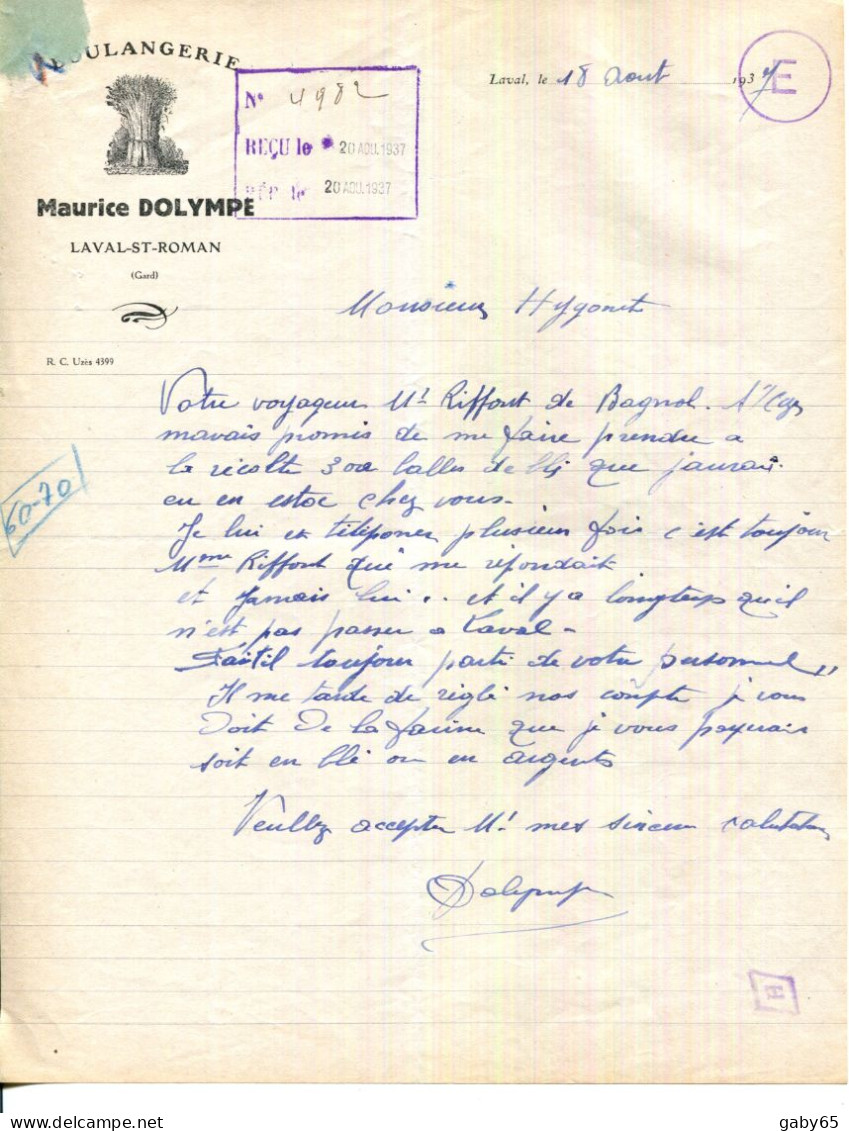 BOULANGERIE
Maurice DOLYMPE
LAVAL-ST-ROMAN
(Gard)
R. C. Uzès 4399
N° 4982
REÇU le 20 AOU. 1937
RÉP. le 20 AOU. 1937
Laval, le 18 Aout 1937
E
Monsieur Hygonet
Votre voyageur Mr Riffort de Bagnol.
mavais promis de me faire prendre a
la récolte 300 balles de blé que jaurai
eu en estoc chez vous.
Je lui et téléponer plusieur fois c'est toujour
Mme Riffort qui me répondait
et jamais lui.. et il y a longteps qu'il
n'est pas passer a Laval -
Faitil toujour parti de votre personnel
Il me tarde de réglé nos compte je vous
Doit De la farine que je vous payrais
soit en blé ou en argents
Veulliz accepter Mr mes sinceur
Dolympe
60-70
H
gaby65